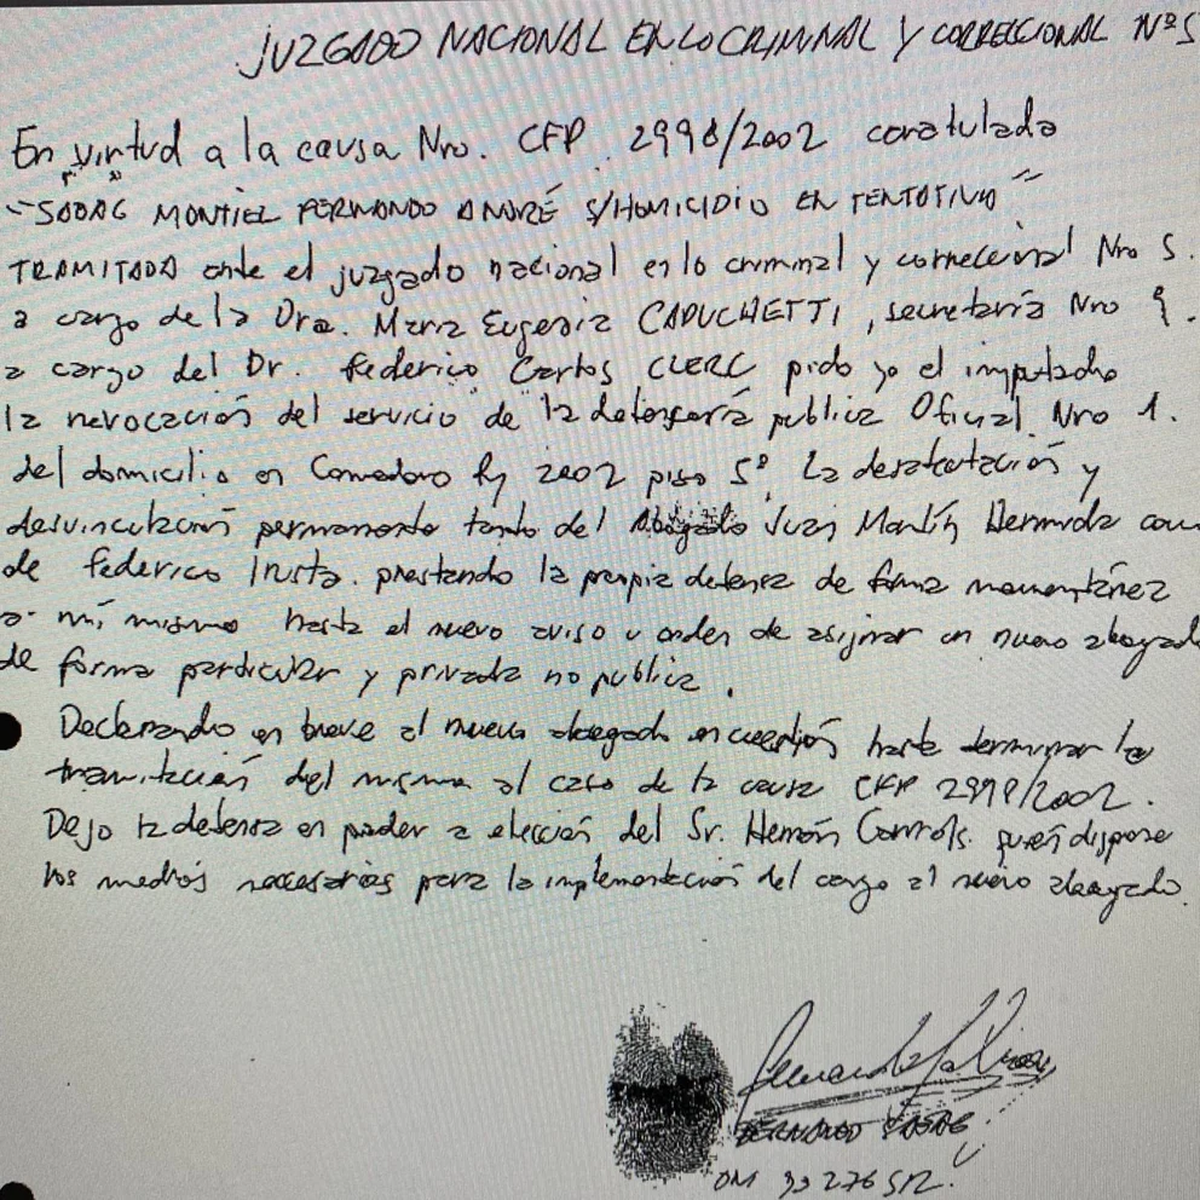 JUZGADO NACIONAL EN LO CRIMINAL Y CORRECCIONAL Nº5
En virtud a la causa Nro. CFP 2998/2002 caratulada
"SABAG MONTIEL FERNANDO ANDRÉ S/HOMICIDIO EN TENTATIVA"
TRAMITADA ante el juzgado nacional en lo criminal y correccional Nro 5.
a cargo de la Dra. Maria Eugenia CAPUCHETTI, secretaría Nro 9.
a cargo del Dr. Federico Carlos CLERC pido yo el imputado
la revocación del servicio de la defensoría publica Oficial Nro 1.
del domicilio en Comodoro Py 2002 piso 5º, La desafectación y
desvinculación permanente tanto del Abogado Juan Martín Hermida como
de Federico Irusta. prestando la propia defensa de forma momentánea
a mí mismo hasta el nuevo aviso u orden de asignar un nuevo abogado
de forma particular y privada no publica.
Declarando en breve al nuevo abogado en cuestión hasta terminar la
tramitación del mismo al caso de la causa CFP 2998/2002.
Dejo la defensa en poder a elección del Sr. Hernán Carrols. quien dispone
los medios necesarios para la implementación del cargo al nuevo abogado.
FERNANDO SABAG